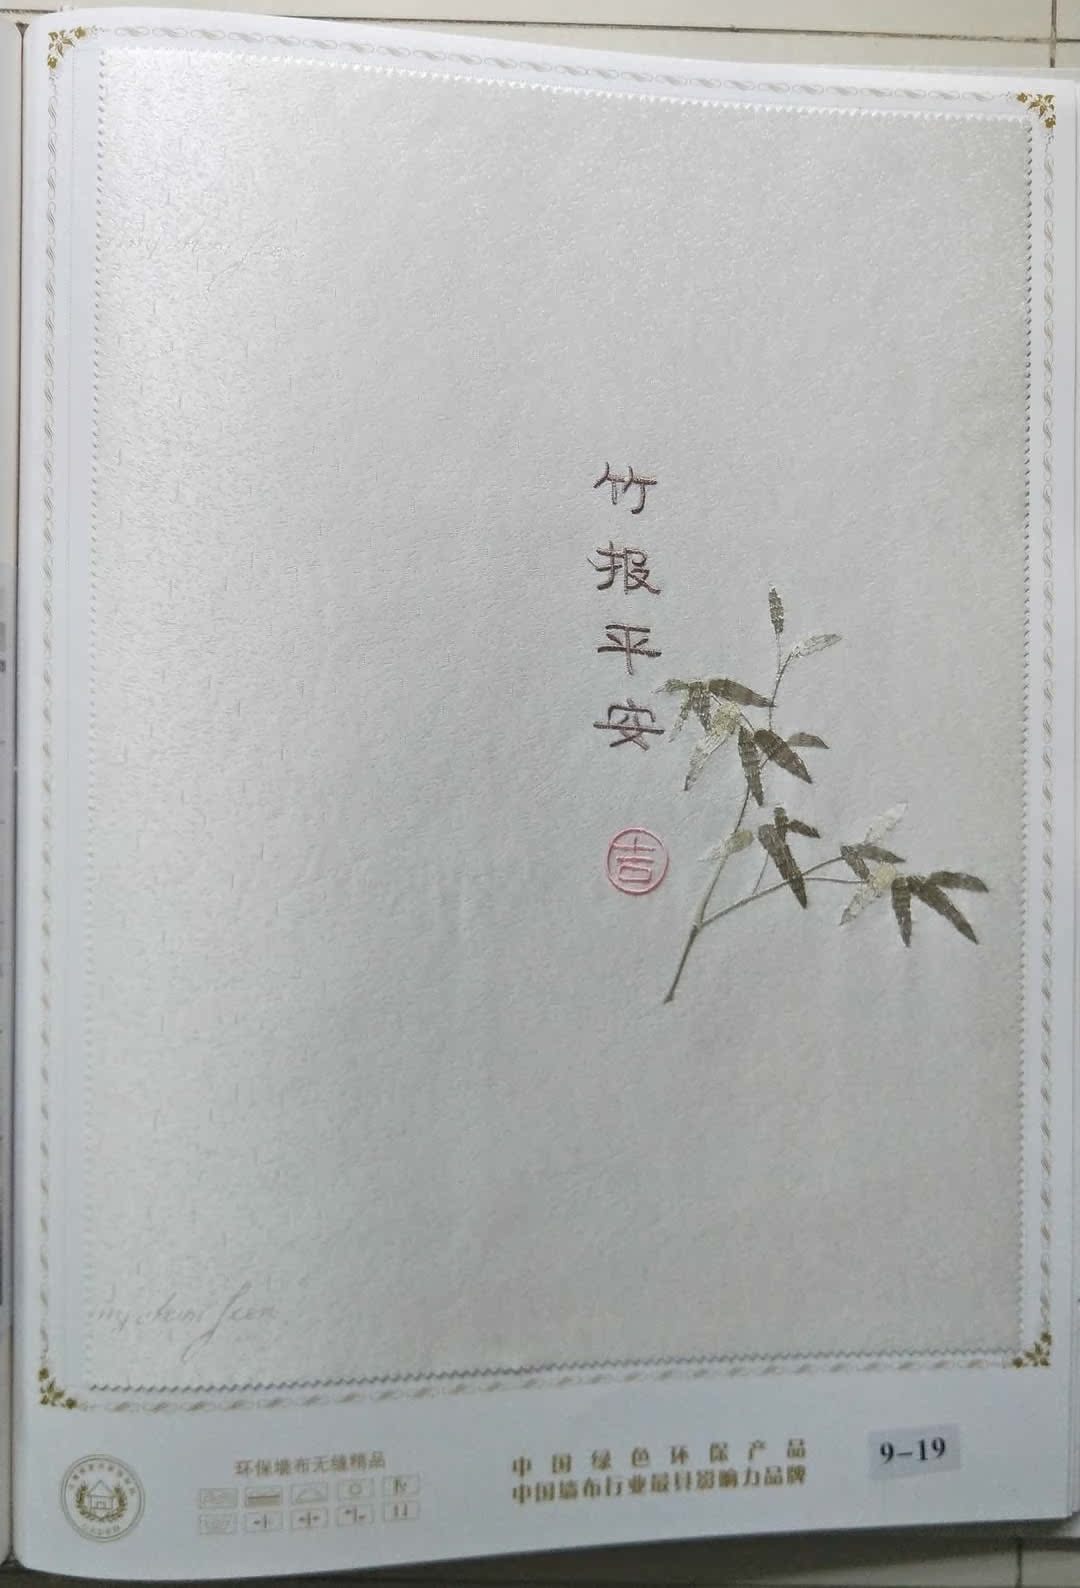 竹
报
平
安
吉
环保墙布无缝精品
中国绿色环保产品
中国墙布行业最具影响力品牌
9-19